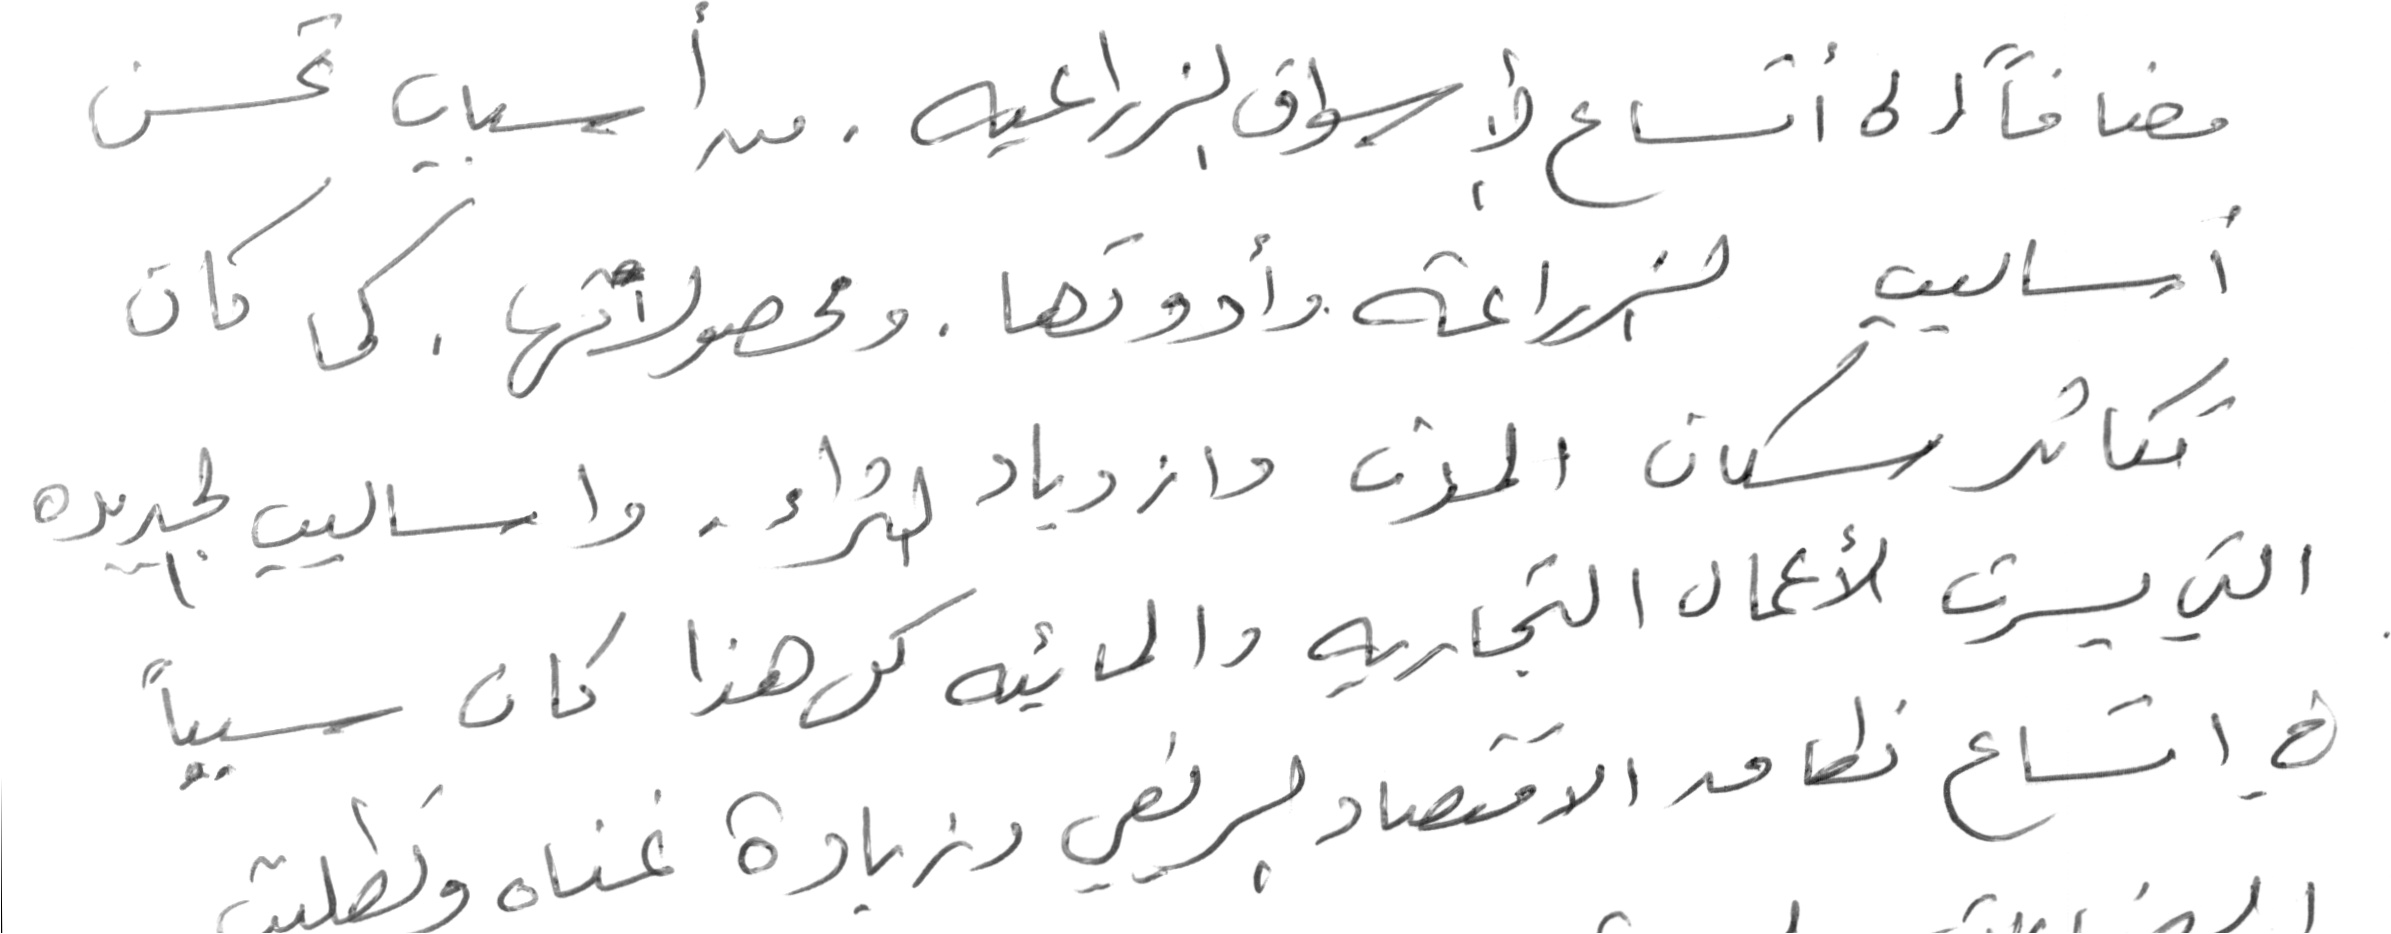 مضافاً الى أتساع الأسواق الزراعيه . من أسباب تحسن
أساليب الزراعة . وأدوتها . ومحصولاتها . كما كان
تكاثر سكان المدن وازدياد الثراء . واساليب الجديده
التي يسرت الأعمال التجاريه والمائيه كل هذا كان سبباً
في اتساع نظام الاقتصاد الريفي وزيادة غناه وتطلبت